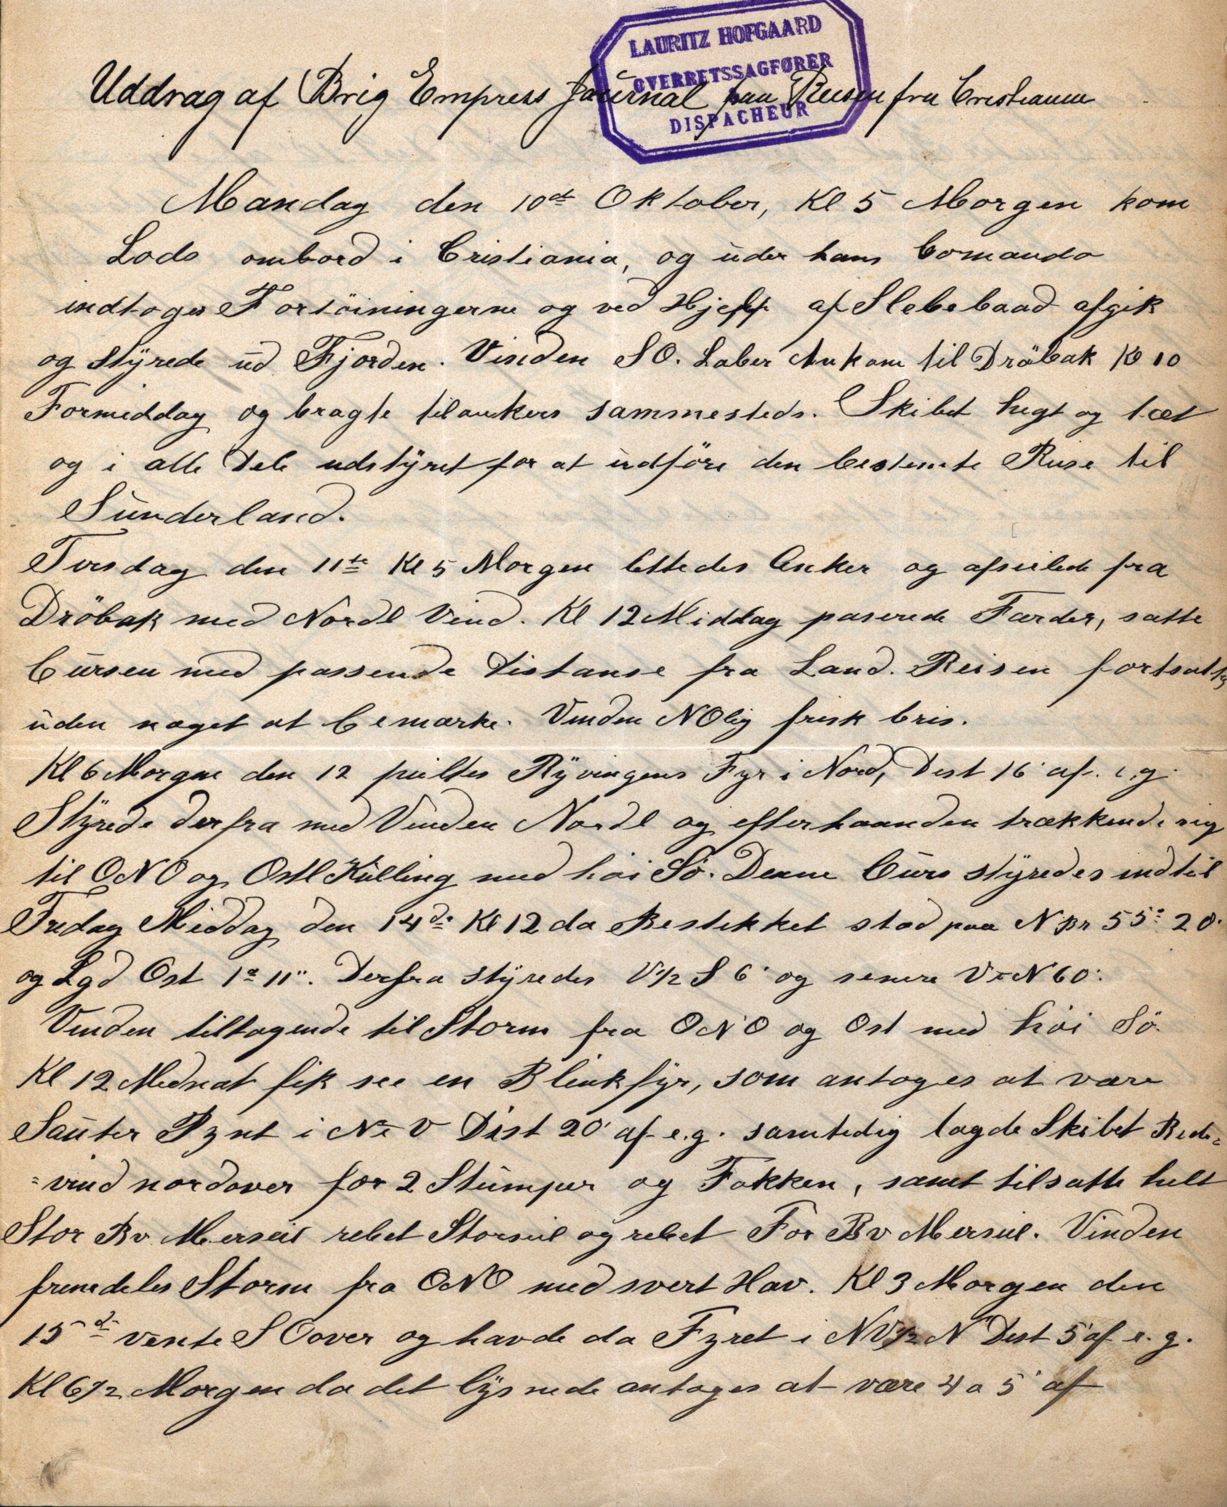 LAURITZ HOFGAARD
OVERRETSSAGFØRER
DISPACHEUR
Uddrag af Brig Empress Journal paa Reisen fra Cristiania
Mandag den 10de Oktober, Kl 5 Morgen kom
Lods ombord i Cristiania, og under hans Comando
indtoges Fortöiningerne og ved Hjelp af Slebebaad afgik
og styrede ud Fjorden. Vinden SO. Laber Ankom til Dröbak Kl 10
Formiddag og bragte tilankers sammesteds. Skibet hegt og tæt
og i alle Dele udstyret for at udföre den bestemte Reise til
Sunderland.
Tirsdag den 11te Kl 5 Morgen lettedes Anker og afseilede fra
Dröbak med Nordl Vind. Kl 12 Middag paserede Færder, satte
Cursen med passende Distanse fra Land. Reisen fortsattes
uden noget at bemærke. Vinden NOlig frisk bris.
Kl 6 Morgen den 12 peiltes Ryvingens Fyr i Nord, Dist 16' af. e.g.
Styrede derfra med Vinden Nordl og efterhaanden trækkende sig
til ONO og Ostl Kulling med höi Sö. Denne Curs styredes indtil
Fredag Middag den 14de Kl 12 da Bestikket stod paa N Br 55° 20'
og Lgd Ost 1° 11". Derfra styredes V½ S 6' og senere V=N 60'.
Vinden tiltagende til Storm fra ONO og Ost med höi Sö.
Kl 12 Midnat fik see en Blinkfyr, som antoges at være
Sauter Pynt i N=V Dist 20' af e.g. samtidig lagde Skibet Bide=
=vind nordover for 2 Stumper og Fokken, samt tilsatte helt
Stor Bv Merseil rebet Storseil og rebet For Bv Merseil. Vinden
fremdeles Storm fra ONO med svert Hav. Kl 3 Morgen den
15de vente SOover og havde da Fyret i NV½N Dist 5' af e.g.
Kl 6½ Morgen da det lysnede antoges at være 4 a 5' af